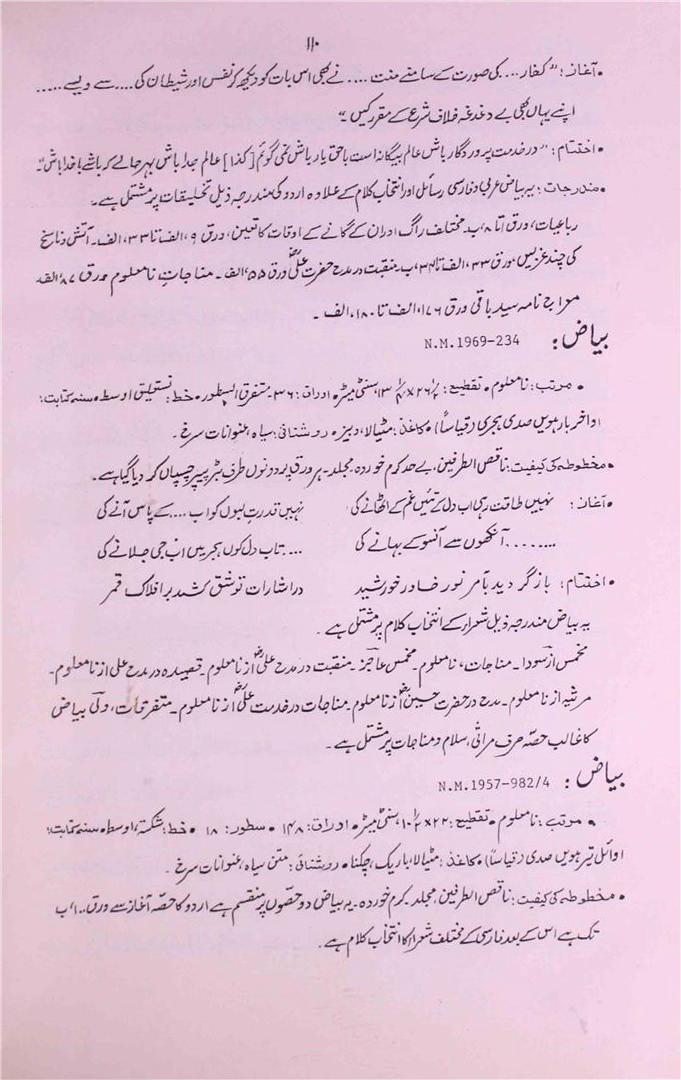 ۱۱۰
• آغاز: "کفار .... کی صورت کے سامنے منت .... نے بھی اس بات کو دیکھ کر نفس اور شیطان کی .... سے ویسے .....
اپنے یہاں بھی بے دغدغہ خلاف شرع کے مقرر کیں۔"
• اختتام: "در خدمت پروردگار باش عالم بیگانہ است باحق یار باش نمی گوئم [کذا] عالم جدا باش بہر جائے کہ باشے با خدا باش"۔
• مندرجات: یہ بیاض عربی و فارسی رسائل اور انتخاب کلام کے علاوہ اردو کی مندرجہ ذیل تخلیقات پر مشتمل ہے۔
رباعیات، ورق ۱ تا ۸، ب۔ مختلف راگ اور ان کے گانے کے اوقات کا تعین، ورق ۹، الف تا ۳۳، الف۔ آتش و ناسخ
کی چند غزلیں، ورق ۳۳، الف تا ۳۴، ب۔ منقبت در مدح حضرت علیؓ ورق ۵۵، الف۔ مناجات نامعلوم ورق ۸۷، الف
معراج نامہ سید باقی ورق ۱۷۶، الف تا ۱۸۰، الف۔
بیاض: N.M.1969-234
• مرتب: نامعلوم • تقطیع: ۲۶ × ۱۳ سنٹی میٹر • اوراق: ۳۶ • متفرق السطور • خط: نستعلیق اوسط • سنہ کتابت:
اواخر بارہویں صدی ہجری (قیاساً) • کاغذ: مٹیالا، دبیز • روشنائی: سیاہ، عنوانات سرخ۔
• مخطوطہ کی کیفیت: ناقص الطرفین، بے حد کرم خوردہ، مجلد۔ ہر ورق پر دونوں طرف بٹر پیپر چسپاں کر دیا گیا ہے۔
• آغاز: نہیں طاقت رہی اب دل کے تئیں غم کے اٹھانے کی نہیں قدرت لبوں کو اب .... کے پاس آنے کی
........ آنکھوں سے آنسو کے بہانے کی .... بتاب دل کوں ہجر میں اب جی جلانے کی
• اختتام: بازگردید بامر نور خاور خورشید در اشارات تو شق گشد بر افلاک قمر
یہ بیاض مندرجہ ذیل شعراء کے انتخاب کلام پر مشتمل ہے۔
مخمس از سودا۔ مناجات، نامعلوم۔ مخمس عاجز۔ منقبت در مدح علیؓ از نامعلوم۔ قصیدہ در مدح علی از نامعلوم۔
مرثیہ از نامعلوم۔ مدح در حضرت حسینؓ از نامعلوم۔ مناجات در خدمت علیؓ از نامعلوم۔ متفرقات، ولی بیاض
کا غالب حصہ صرف مراثی، سلام و مناجات پر مشتمل ہے۔
بیاض: N.M.1957-982/4
• مرتب: نامعلوم • تقطیع: ۲۲ × ۱۰ سنٹی میٹر • اوراق: ۱۴۸ • سطور: ۱۸ • خط: شکستہ، اوسط • سنہ کتابت:
اوائل تیرہویں صدی (قیاساً) • کاغذ: مٹیالا، باریک، چکنا • روشنائی: متن سیاہ، عنوانات سرخ۔
• مخطوطہ کی کیفیت: ناقص الطرفین، مجلد۔ کرم خوردہ۔ یہ بیاض دو حصوں پر منقسم ہے اردو کا حصہ آغاز سے ورق
تک ہے اس کے بعد فارسی کے مختلف شعراء کا انتخاب کلام ہے۔